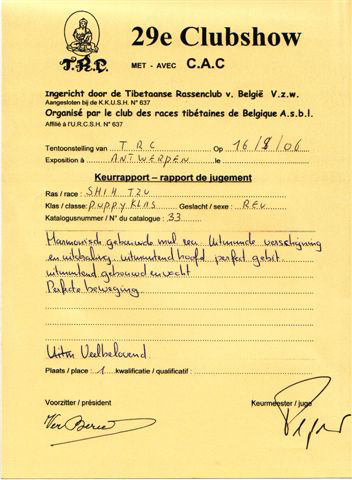 29e Clubshow
T.R.C.
MET - AVEC C.A.C
Ingericht door de Tibetaanse Rassenclub v. België V.z.w.
Aangesloten bij de K.K.U.S.H. N° 637
Organisé par le club des races tibétaines de Belgique A.s.b.l.
Affilié à l'U.R.C.S.H. N° 637
Tentoonstelling van TRC Op 16/8/06
Exposition à ANTWERPEN le
Keurrapport – rapport de jugement
Ras / race : SHIH TZU
Klas / classe: PUPPYKLAS Geslacht / sexe : REU
Katalogusnummer / N° du catalogue : 33
Harmonisch gebouwde reu. Uitmuntende verschijning
en uitstraling. uitmuntend hoofd perfect gebit.
uitmuntend gebouwd en vacht
Perfecte beweging.
Uitm Veelbelovend.
Plaats / place : 1 kwalificatie / qualificatif :
Voorzitter / président
Keurmeester / juge